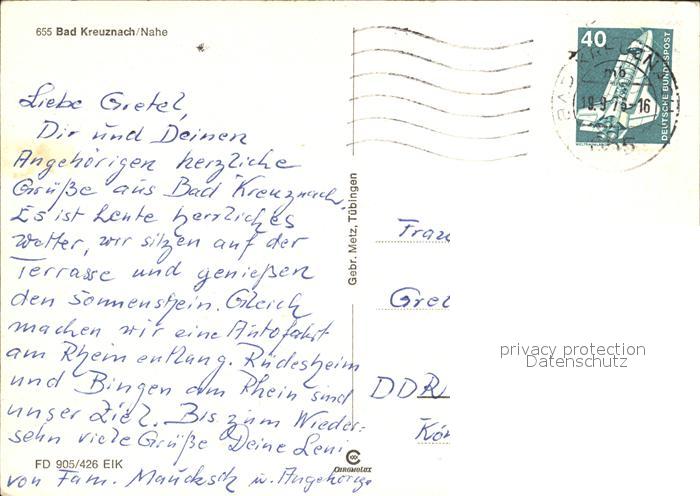 655 Bad Kreuznach/Nahe
Liebe Gretel,
Dir und Deinen
Angehörigen herzliche
Grüße aus Bad Kreuznach.
Es ist heute herrliches
Wetter, wir sitzen auf der
Terrasse und genießen
den Sonnenschein. Gleich
machen wir eine Autofahrt
am Rhein entlang. Rüdesheim
und Bingen am Rhein sind
unser Ziel. Bis zum Wieder-
sehn viele Grüße Deine Leni
von Fam. u. Angehörige
FD 905/426 EIK
Gebr. Metz, Tübingen
CHROMOLUX
40
DEUTSCHE BUNDESPOST
-16
Frau
Gre
DDR
Kö
privacy protection
Datenschutz